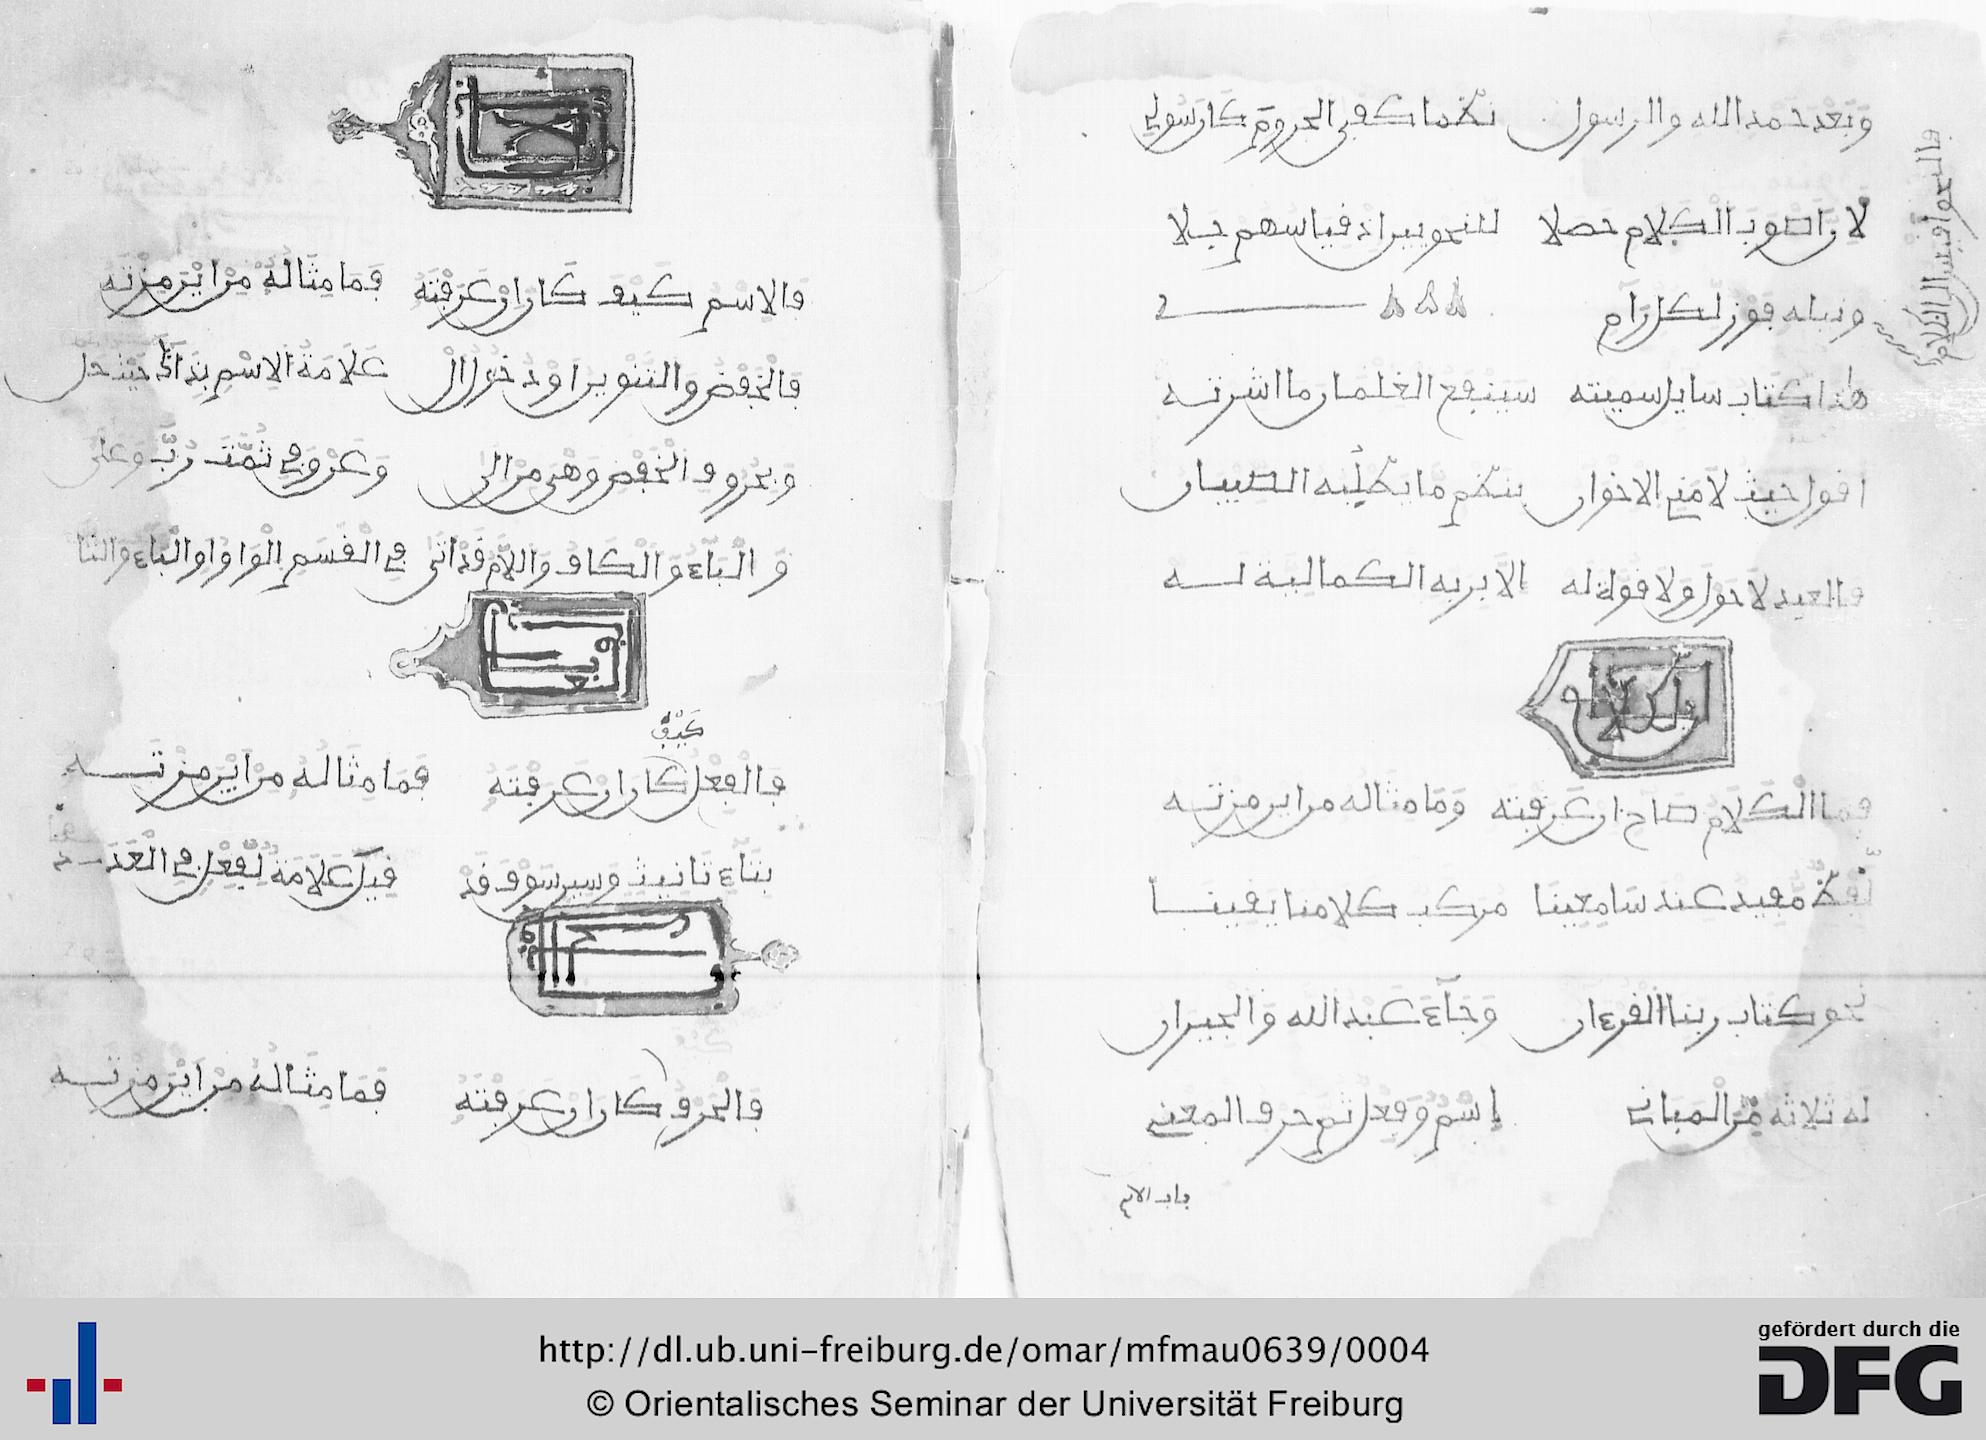 وبعد حمد الله والرسول نظما كفى الجروم كان سولي
لان صوب الكلام حصلا للنحويين اذ قياسهم جلا
ونيله فوز لكل رام
هذا كتاب سايل سميته سينفع الغلمان ما اشرته
اقول حيث لامني الاخوان بنظم ما يطلبه الصبيان
فالعبد لا حول ولا قوة له الا بربه الكمالية له
باب الكلام
فما الكلام صاح ان عرفته وما مثاله من اين مزته
لفظ مفيد عند سامعينا مركب كلامنا يقينا
نحو كتاب ربنا القرءان وجاء عبد الله والجيران
له ثلاثة من المباني إسم وفعل ثم حرف المعنى
باب الاسم
فالاسم كيف كان ان عرفته فما مثاله من اين مزته
فالخفض والتنوين او دخول ال علامة الاسم بذاك حيث حل
وبحروف الخفض وهي من الى وعن وفي ثمت رب وعلى
والباء والكاف واللام قد اتى في القسم الواو والباء والتا
كيف
فالفعل كان ان عرفته فما مثاله من اين مزته
بتاء تانيث وسين سوف قد قيل علامة لفعل في العدد
فالحرف كان ان عرفته فما مثاله من اين مزته
http://dl.ub.uni-freiburg.de/omar/mfmau0639/0004
© Orientalisches Seminar der Universität Freiburg
gefördert durch die
DFG